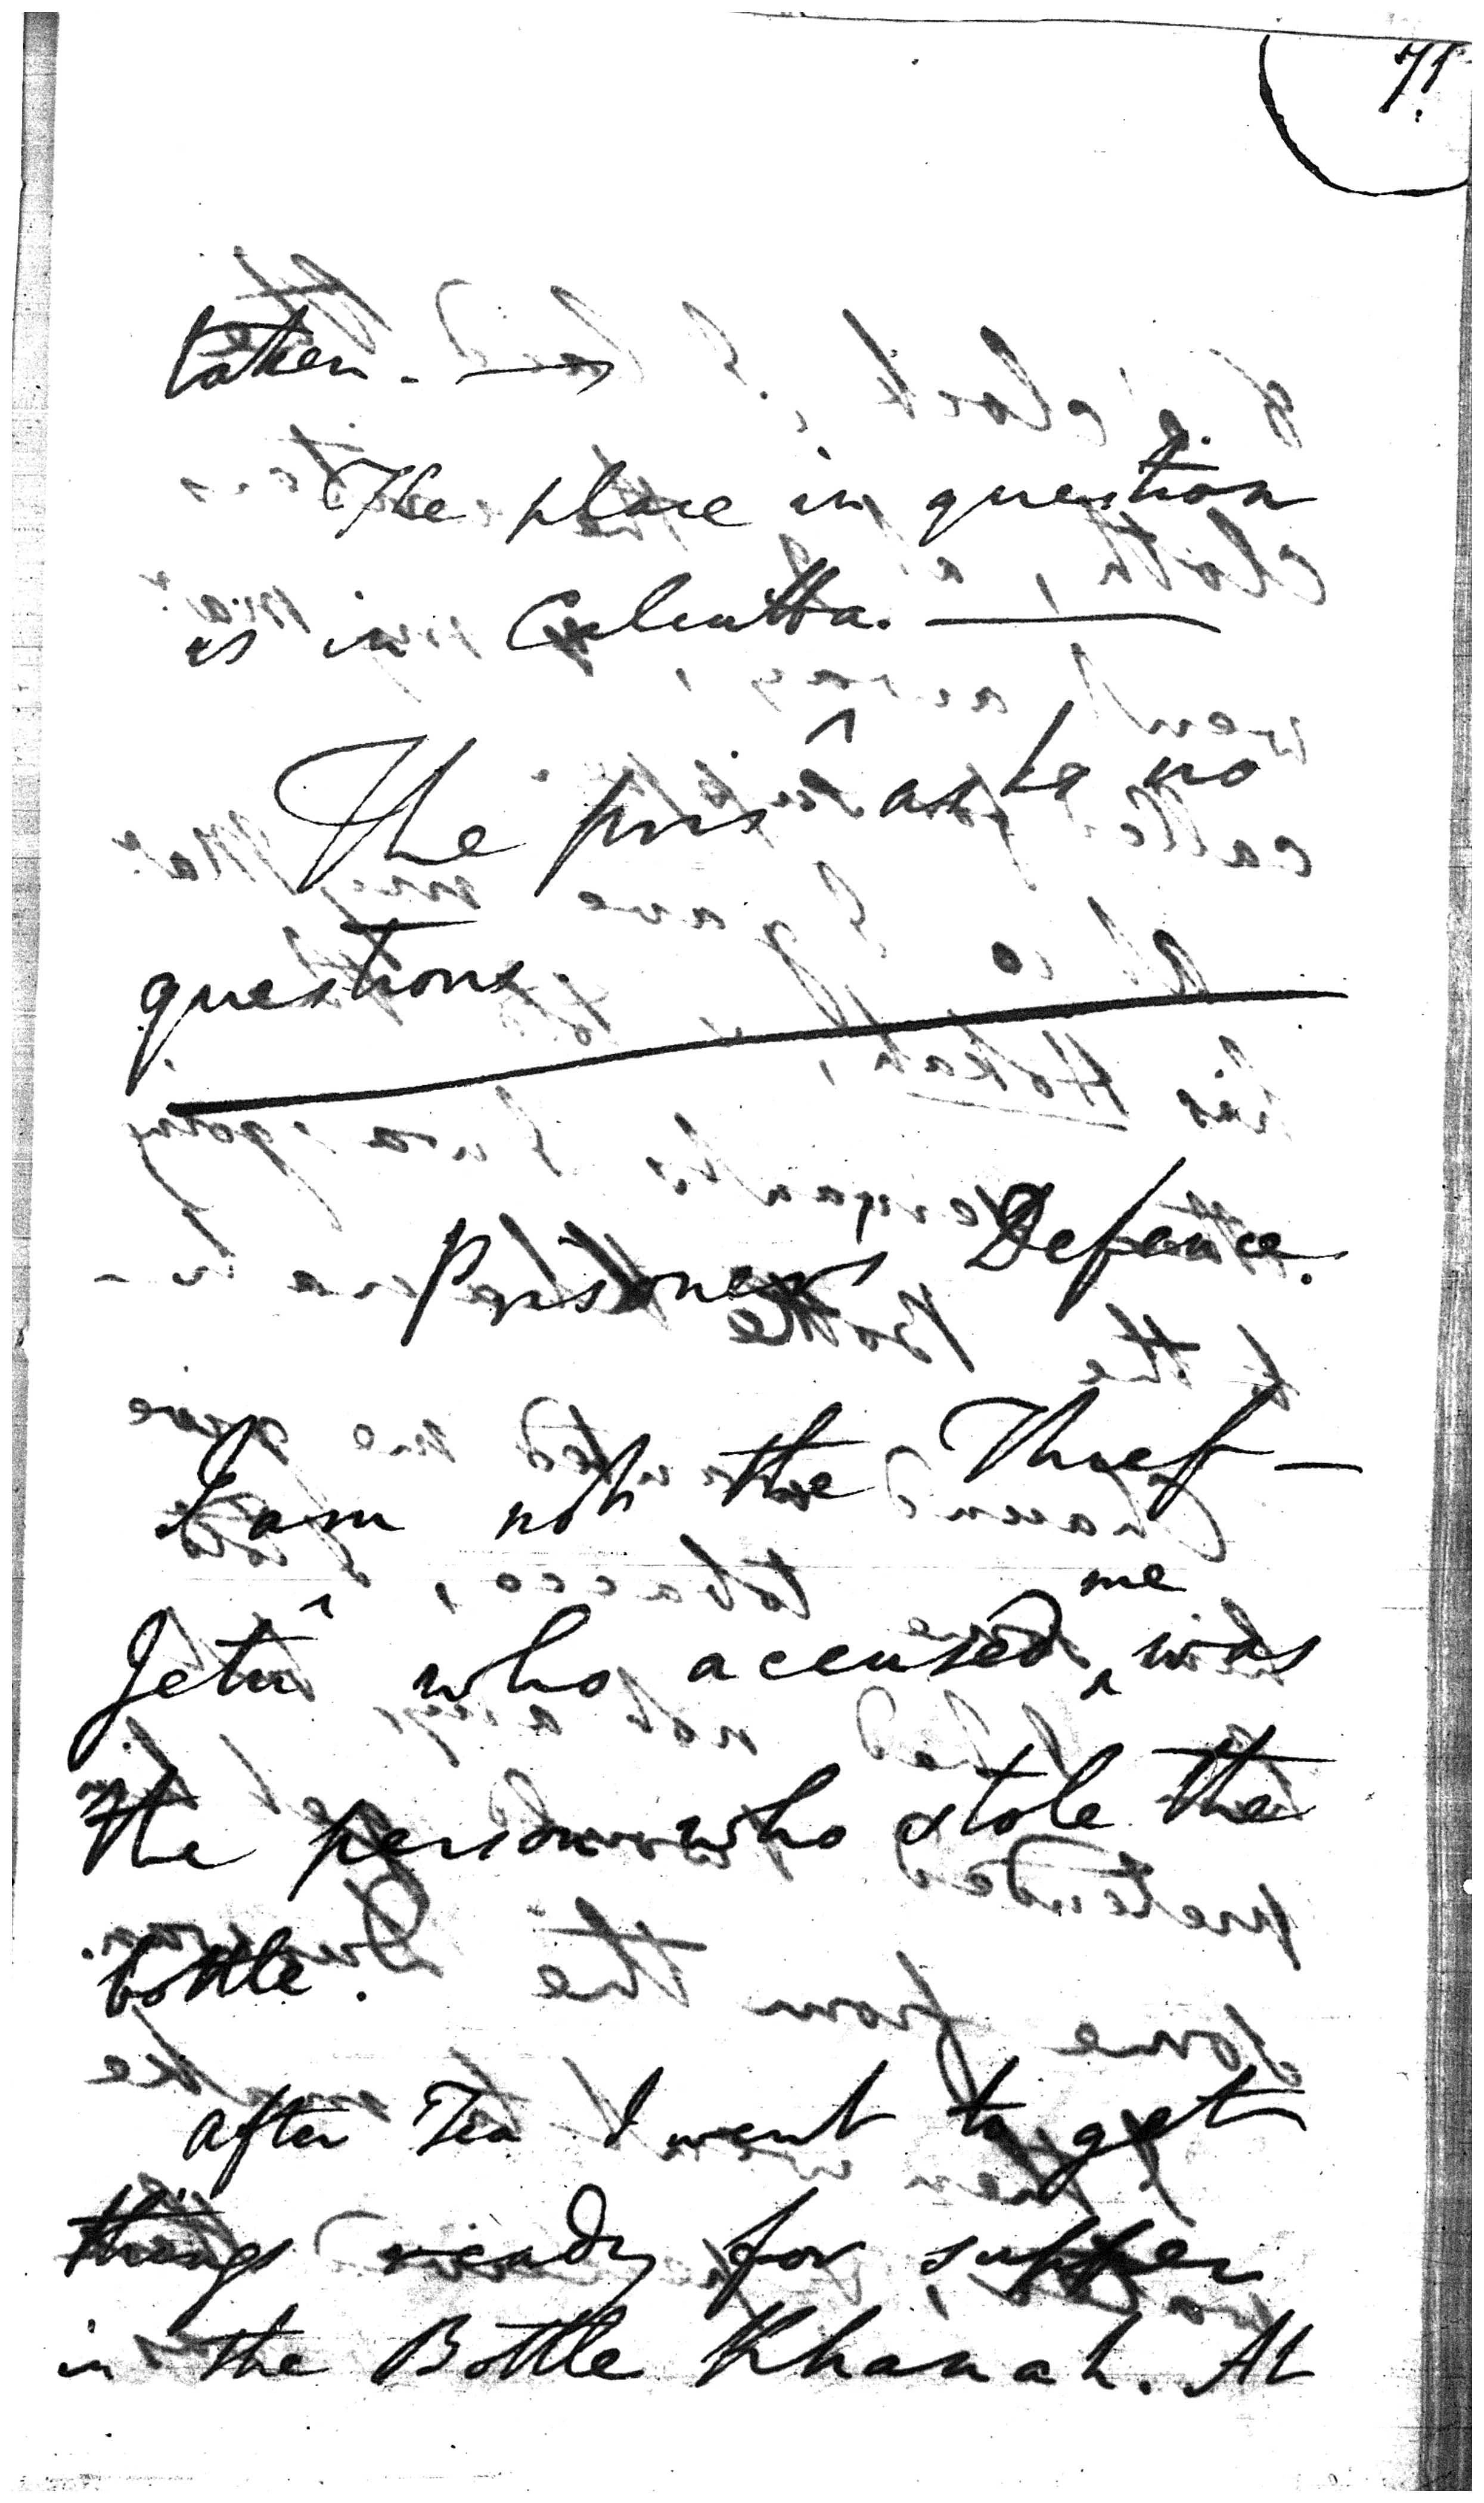 71.
taken. —
The place in question
is in Calcutta. —
The prisr asks no
questions.
Prisoner's Defence.
I am not the Thief —
Jetû who accused me was
the person who stole the
bottle.
After Tea I went to get
things ready for supper
in the Bottle Khanah. At